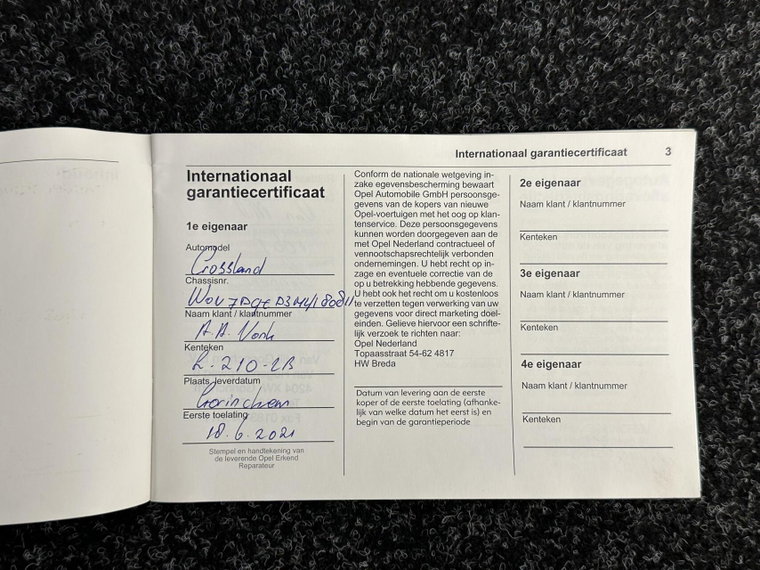 Internationaal garantiecertificaat 3
Internationaal
garantiecertificaat
1e eigenaar
Automodel
Crossland
Chassisnr.
Naam klant / klantnummer
A.A. Vonk
Kenteken
L-210-LB
Plaats leverdatum
Gorinchem
Eerste toelating
18.6.2021
Stempel en handtekening van
de leverende Opel Erkend
Reparateur
Conform de nationale wetgeving in-
zake egevensbescherming bewaart
Opel Automobile GmbH persoonsge-
gevens van de kopers van nieuwe
Opel-voertuigen met het oog op klan-
tenservice. Deze persoonsgegevens
kunnen worden doorgegeven aan de
met Opel Nederland contractueel of
vennootschapsrechtelijk verbonden
ondernemingen. U hebt recht op in-
zage en eventuele correctie van de
op u betrekking hebbende gegevens.
U hebt ook het recht om u kosteloos
te verzetten tegen verwerking van uw
gegevens voor direct marketing doel-
einden. Gelieve hiervoor een schrifte-
lijk verzoek te richten naar:
Opel Nederland
Topaasstraat 54-62 4817
HW Breda
Datum van levering aan de eerste
koper of de eerste toelating (afhanke-
lijk van welke datum het eerst is) en
begin van de garantieperiode
2e eigenaar
Naam klant / klantnummer
Kenteken
3e eigenaar
Naam klant / klantnummer
Kenteken
4e eigenaar
Naam klant / klantnummer
Kenteken